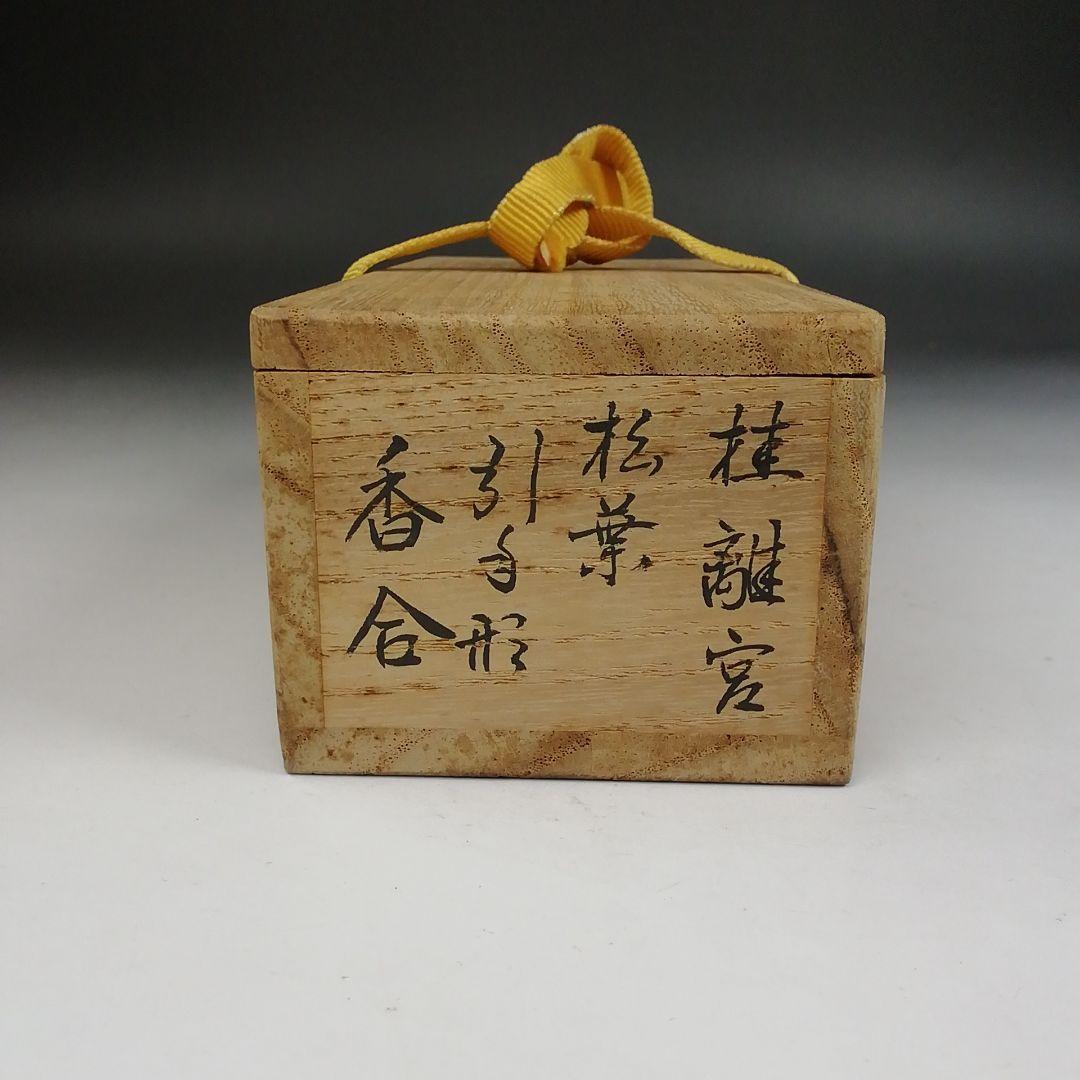 桂離宮
松葉
引手形
香合